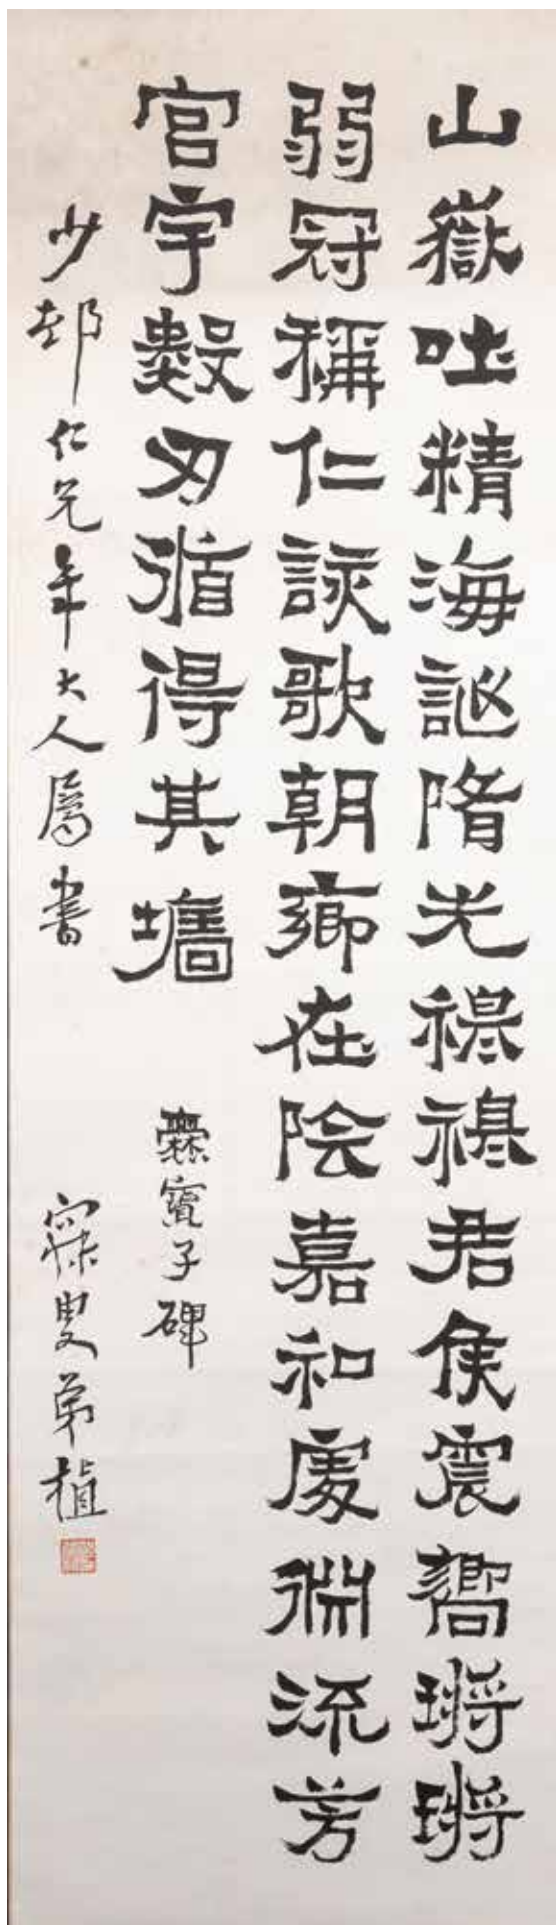 山嶽吐精海誕陼光穆穆君侯震響鏘鏘
弱冠稱仁詠歌朝鄉在陰嘉和處淵流芳
宮宇數刃循得其墻
爨寶子碑
少仁兄年大人屬書
寐叟弟植